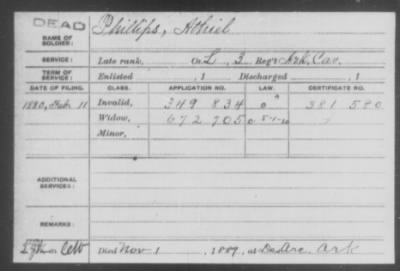 DEAD
NAME OF SOLDIER: Phillips, Athiel
SERVICE: Late rank, Co. L, 3 Reg't Ark. Cav.
TERM OF SERVICE: Enlisted , 1 Discharged , 1
DATE OF FILING. CLASS. APPLICATION NO. LAW. CERTIFICATE NO.
1880, Feb 11 Invalid, 349 834 381 580
Widow, 672 705
Minor,
ADDITIONAL SERVICES:
REMARKS:
Died Nov 1, 1889, at Des Arc Ark